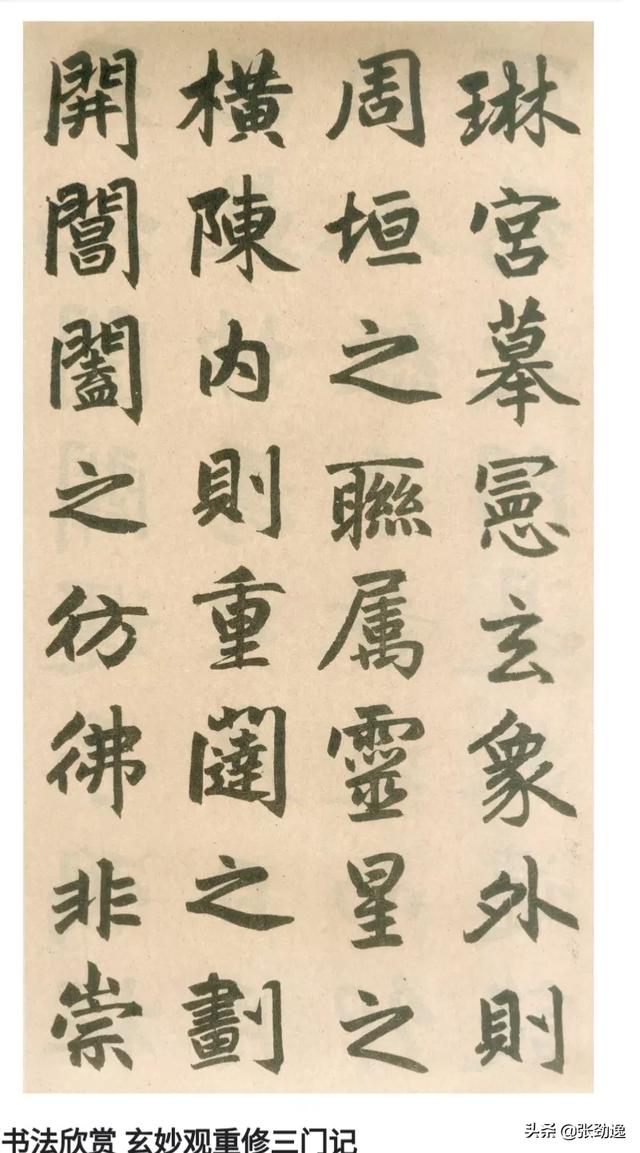 琳宮摹憲玄象外則
周垣之聯属靈星之
橫陳内則重闥之劃
開閶闔之彷彿非崇
书法欣赏 玄妙观重修三门记
头条 @张劲逸